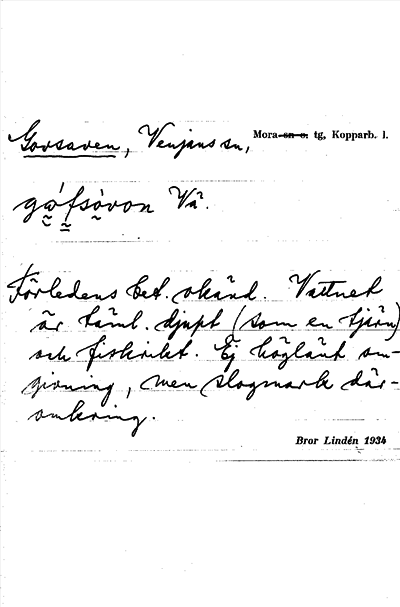 Govsaven, Venjans sn, Mora sn o. tg, Kopparb. l.
gåfsòvon Vå.
Förledens bet. okänd. Vattnet
är täml. djupt (som en tjärn)
och fiskrikt. Ej högländ om-
givning, men slogmark där-
omkring.
Bror Lindén 1934